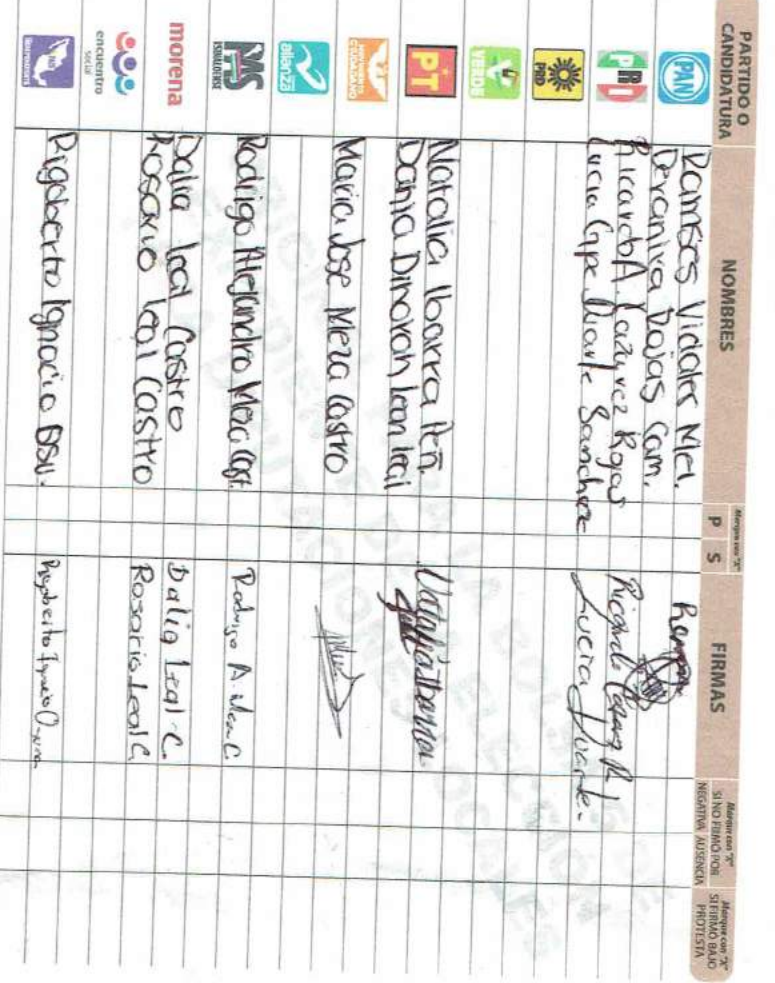 PARTIDO O CANDIDATURA NOMBRES Marque con "X" P S FIRMAS Marque con "X" SI NO FIRMÓ POR NEGATIVA AUSENCIA Marque con "X" SI FIRMÓ BAJO PROTESTA
PAN Ramses Vidales Mel.
Deranira Rojas Cam.
PRI Ricardo A. Cazarez Rojas Ricardo
Lucia Gpe Duarte Sanchez Lucia Duarte.
PRD
VERDE
PT Natalia Ibarra Peñ. Natalia Ibarra
Dania Dinorah Leon Leal
MOVIMIENTO CIUDADANO Maria Jose Meza Castro
alianza
PAS SINALOENSE Rodrigo Alejandro Meza Cast. Rodrigo A. Meza C.
morena Dalia Leal Castro Dalia Leal C.
Rosario Leal Castro Rosario Leal C.
encuentro social
Rigoberto Ignacio Osu. Rigoberto Ignacio